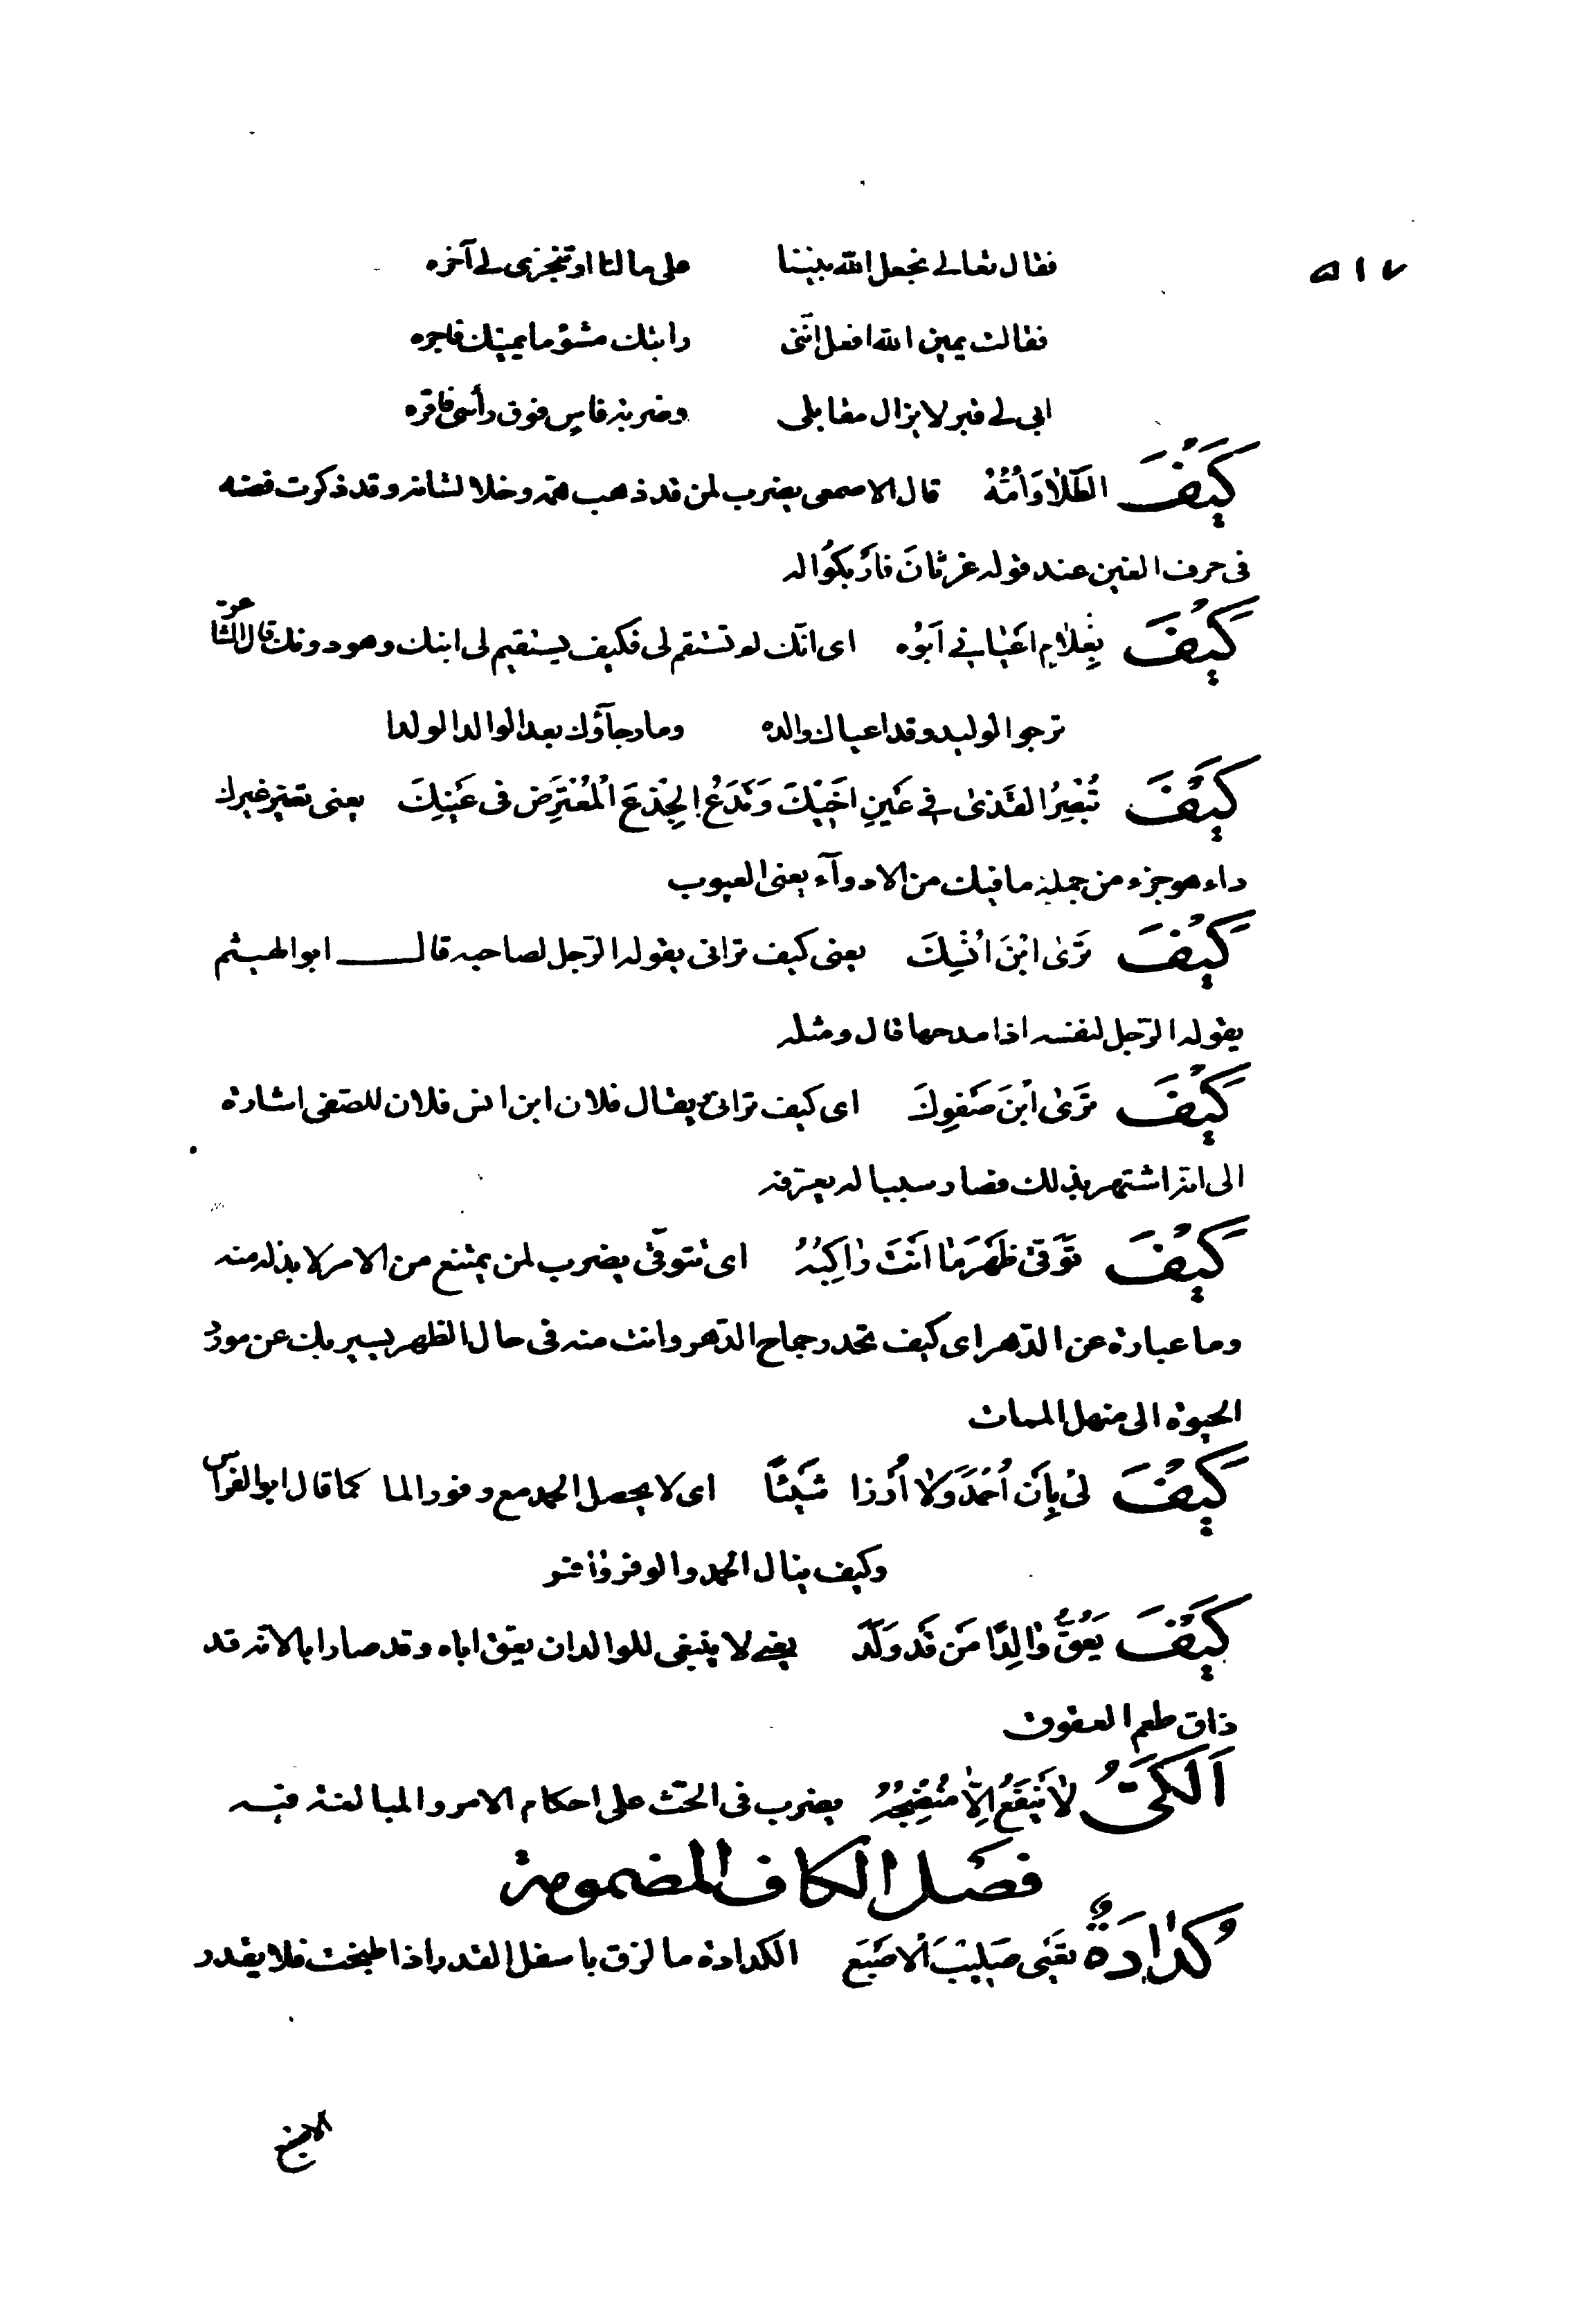 ٥١٧
فقال تعالى نجعل الله بيننا على مالنا او تنجزى لى آخره
فقالت يمين الله افعل انّنى رايتك مشؤما يمينك فاجره
ابى لى قبر لا يزال مقابلى وضربة فاس فوق رأسى فاقره
كَيْفَ الطَّلَا وَاُمُّهُ قال الاصمعى يضرب لمن قد ذهب همّه وخلا لشانه وقد ذكرت قصته
فى حرف الغين عند قوله غرثانَ فارْبكُوا له
كَيْفَ بِغُلَامٍ اَعْيَانِى اَبُوْه اى انّك لم تستقم لى فكيف يستقيم لى ابنك وهو دونك قال الشاعر
ترجوا لوليد وقد اعياك والده وما رجآؤك بعد الوالد الولدا
كَيْفَ تُبْصِرُ الْقَذَى فِى عَيْنِ اَخِيْكَ وَتَدَعُ الْجِذْعَ الْمُعْتَرِضَ فى عَيْنِكَ يعنى تعيّر غيرك
داء هو جزء من جملة ما فيك من الادوآء يعنى العيوب
كَيْفَ تَرَى ابْنَ اُنْسِكَ يعنى كيف ترانى يقوله الرّجل لصاحبه قال ابو الهيثم
يقوله الرّجل لنفسه اذا مدحها قال ومثله
كَيْفَ تَرَى ابْنَ صَفْوِكَ اى كيف ترانى يقال فلان ابن انس فلان للصّفى اشارة
الى انّه اشتهر بذلك فصار سببا له يعرّفه
كَيْفَ تَوَقَّى ظَهْرَ مَا اَنْتَ رَاكِبُهُ اى تتوقّى يضرب لمن يمتنع من الامر لا بدّ له منه
وما عبارة عن الدّهر اى كيف تحدر جماح الدّهر وانت منه فى حال الظهر يسير بك عن مورد
الحيوة الى منهل الممات
كَيْفَ لِىْ بِاَنْ اُحْمَدَ وَلَا اُرْزَا شَيْئًا اى لا يحصل الحمد مع وفور الما كما قال ابو الفراس
وكيف ينال الحمد والوفر وافر
كَيْفَ يَعُقُّ وَالِدًا مَنْ قَدْ وَلَدَ يعنى لا ينبغى للوالد ان يعقّ اباه وقد صار ابا لانّه قد
ذاق طعم العقوق
اَلْكَىُّ لَا يَنْفَعُ اِلَّا مُنْضِجُهُ يضرب فى الحثّ على احكام الامر والمبالغة فيه
فصل الكاف المضمومة
كُدَادَةٌ تُعْيِى صَلِيْبَ الْاِصْبَعِ الكدادة ما لزق باسفل القدر اذا طبخت فلا يقدر
الاصبع